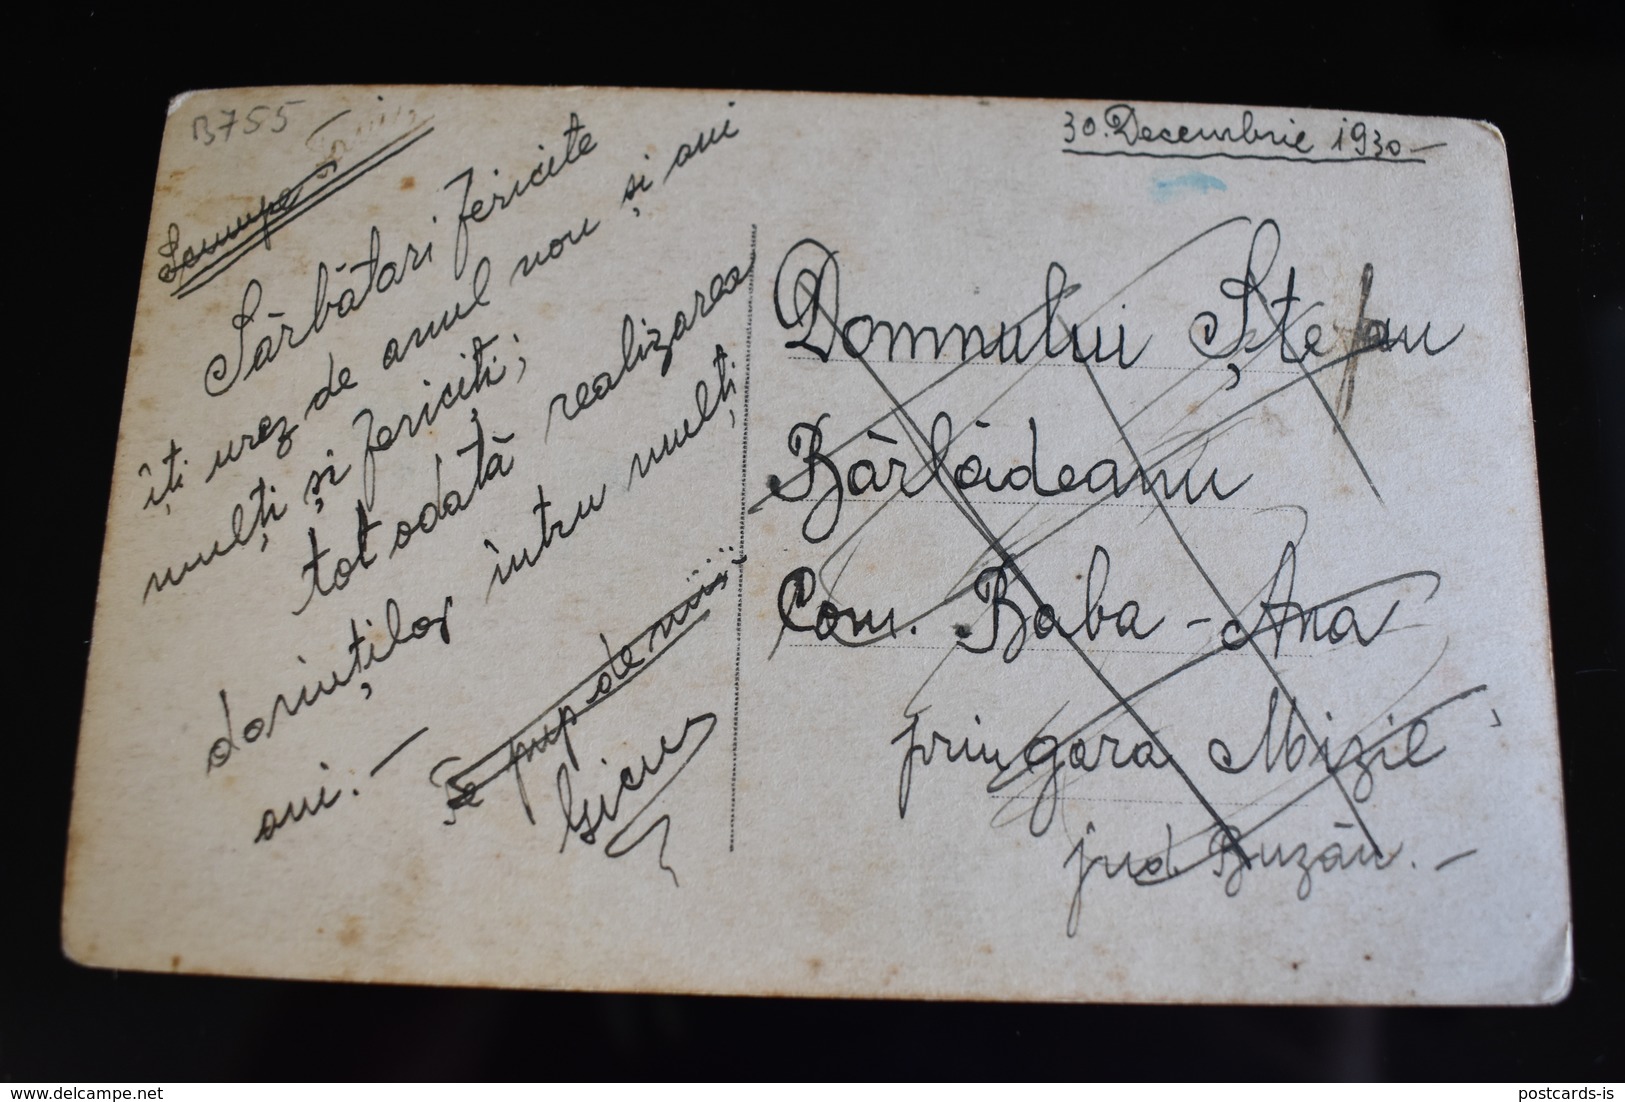 B755
Scumpe
Sărbători fericite
îți urez de anul nou și ani
mulți și fericiți;
tot odată realizarea
dorinților întru mulți
ani. —
Te pup de miiii.....
Gicu
30. Decembrie 1930 —
Domnului Ștefan
Bârlădeanu
Com. Baba - Ana
prin gara Mizil
jud. Buzău. —
postcards-is